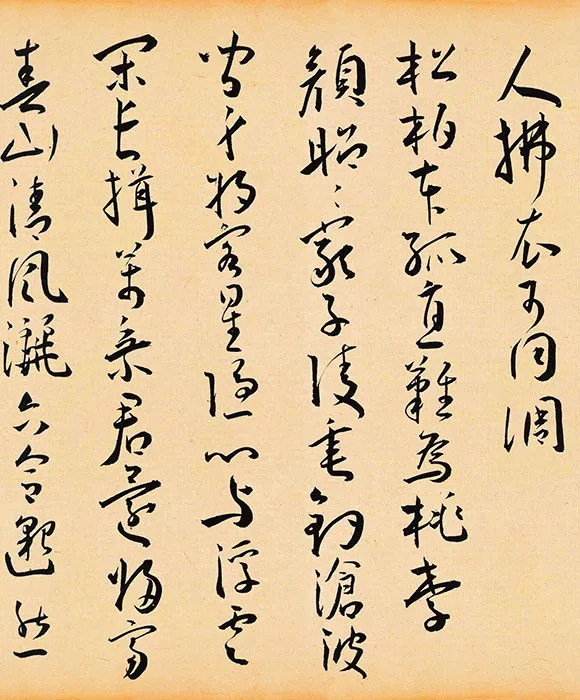 人拂衣可同調
松柏本孤直難為桃李
顏昭〻嚴子陵垂釣滄波
間身將客星隱心與浮雲
閑長揖萬乘君還歸富
春山清風灑六合邈然